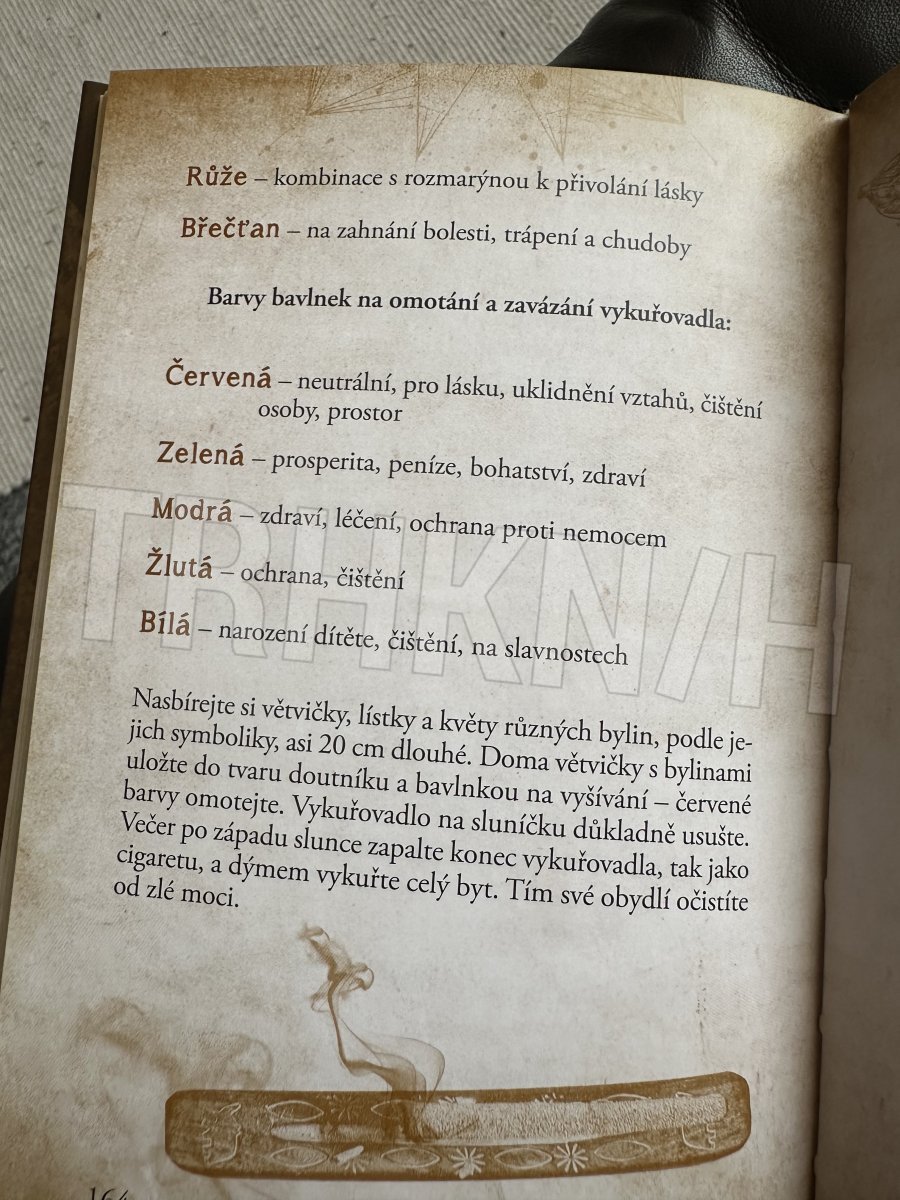 Růže – kombinace s rozmarýnou k přivolání lásky
Břečťan – na zahnání bolesti, trápení a chudoby
Barvy bavlnek na omotání a zavázání vykuřovadla:
Červená – neutrální, pro lásku, uklidnění vztahů, čištění
osoby, prostor
Zelená – prosperita, peníze, bohatství, zdraví
Modrá – zdraví, léčení, ochrana proti nemocem
Žlutá – ochrana, čištění
Bílá – narození dítěte, čištění, na slavnostech
TRHKN/H
Nasbírejte si větvičky, lístky a květy různých bylin, podle je-
jich symboliky, asi 20 cm dlouhé. Doma větvičky s bylinami
uložte do tvaru doutníku a bavlnkou na vyšívání – červené
barvy omotejte. Vykuřovadlo na sluníčku důkladně usušte.
Večer po západu slunce zapalte konec vykuřovadla, tak jako
cigaretu, a dýmem vykuřte celý byt. Tím své obydlí očistíte
od zlé moci.
164